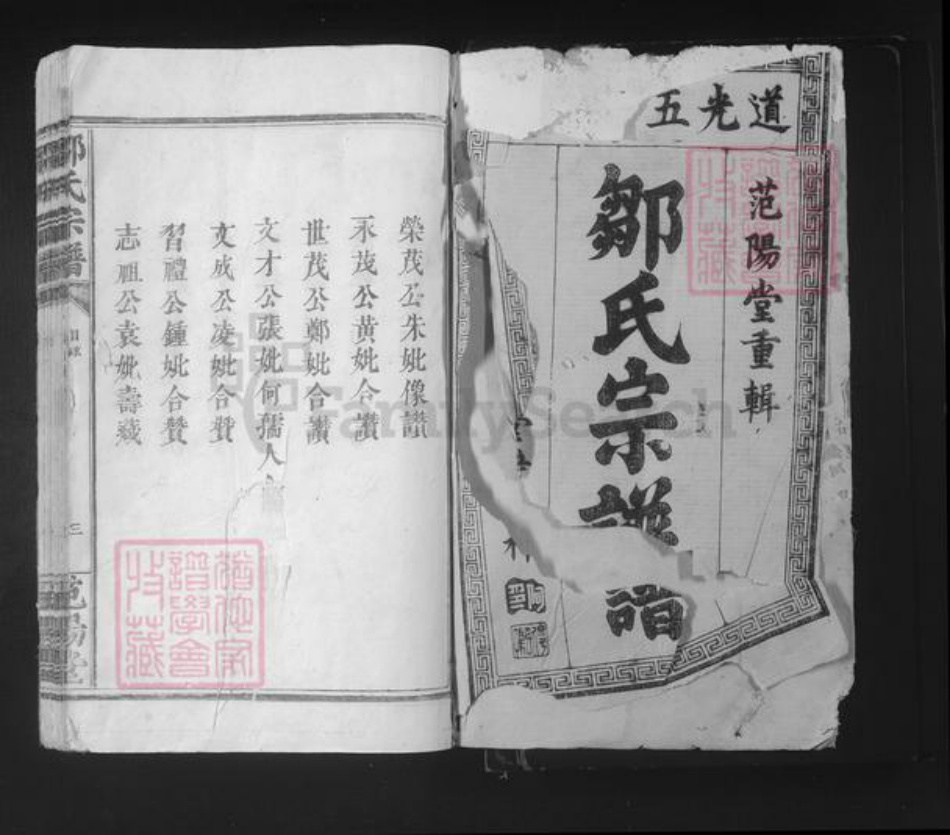 道光五
范陽堂重輯
鄒氏宗譜
榮茂公朱妣像讚
永茂公黃妣合讚
世茂公鄭妣合讚
文才公張妣何孺人
文成公凌妣合贊
習禮公鍾妣合贊
志祖公袁妣壽藏
鄒氏宗譜
目錄
三
范陽堂
猶他家譜學會收藏
猶他家譜學會收藏
FamilySearch